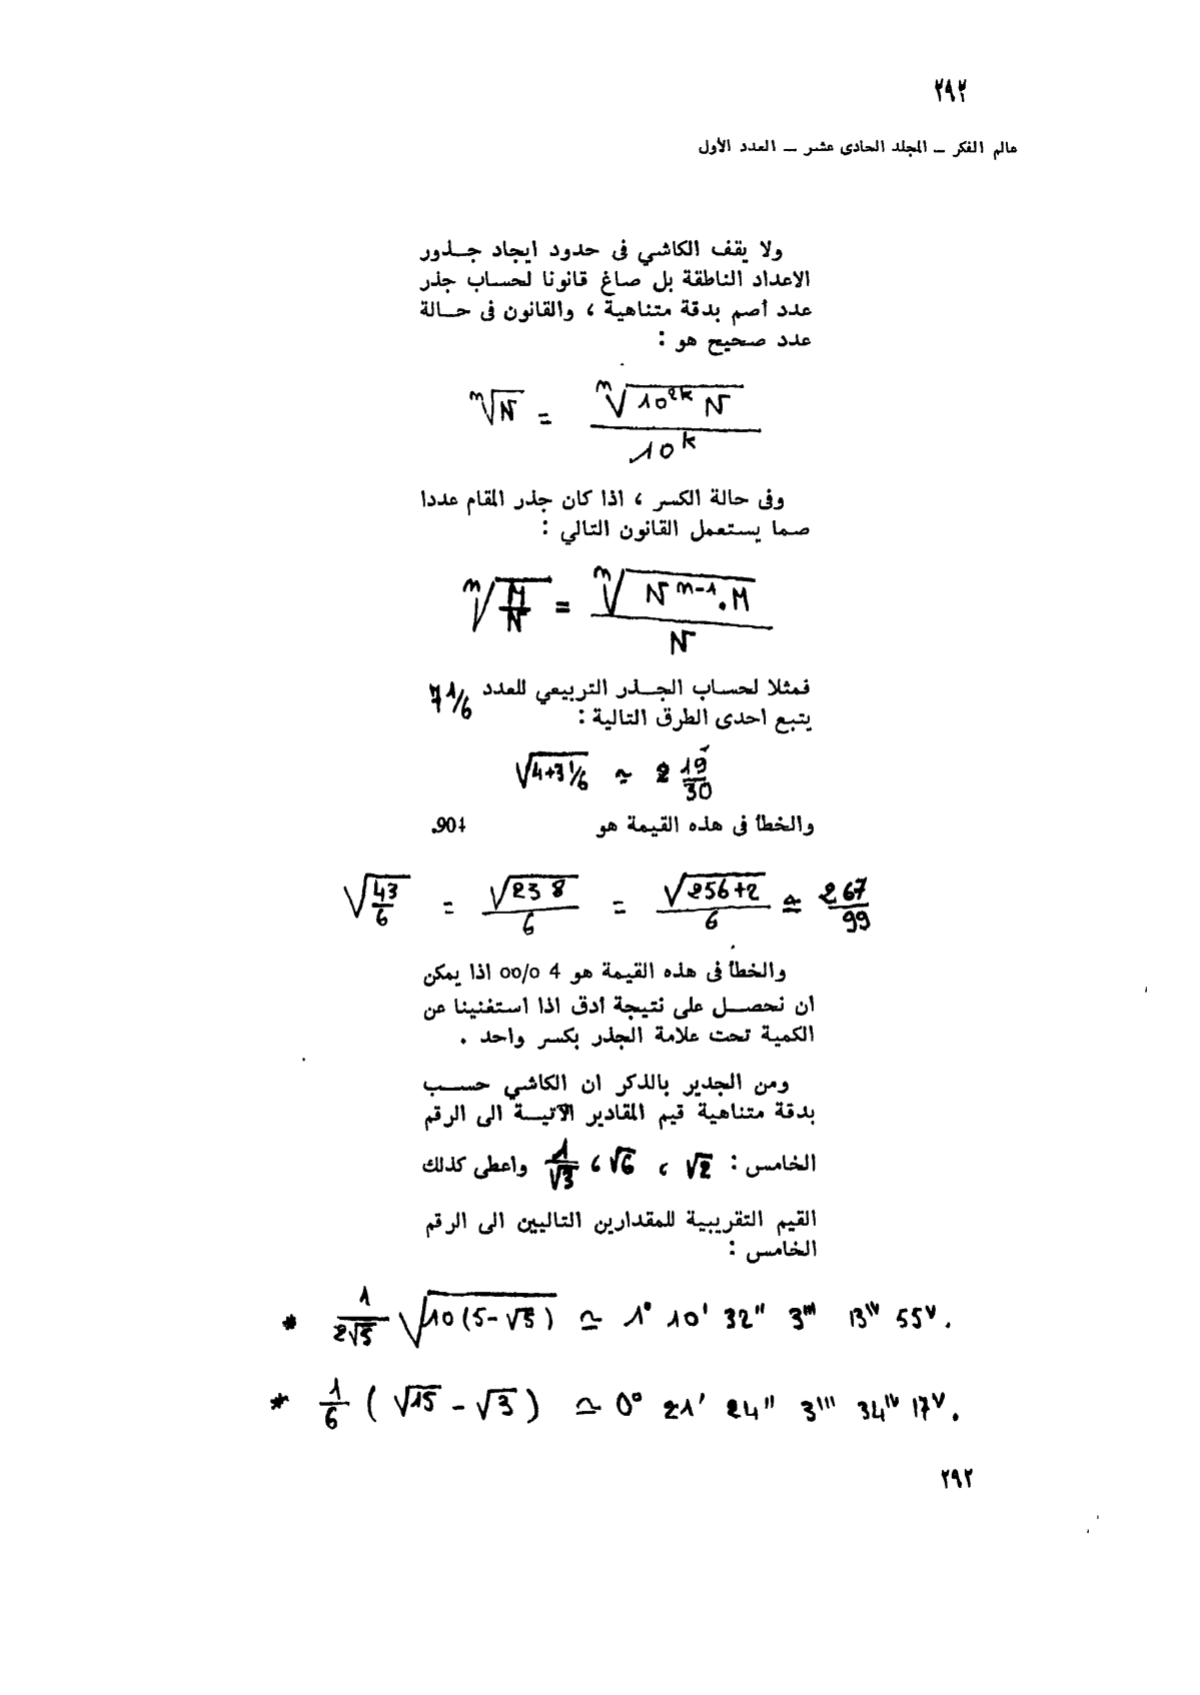 ٢٩٢
عالم الفكر ــ المجلد الحادى عشر ــ العدد الأول
ولا يقف الكاشي فى حدود ايجاد جــذور
الاعداد الناطقة بل صاغ قانونا لحساب جذر
عدد أصم بدقة متناهية ، والقانون فى حــالة
عدد صحيح هو :
ᵐ√N = ᵐ√(10²ᵏ N) / 10ᵏ
وفى حالة الكسر ، اذا كان جذر المقام عددا
صما يستعمل القانون التالي :
ᵐ√(M/N) = ᵐ√(Nᵐ⁻¹.M) / N
فمثلا لحساب الجــذر التربيعي للعدد 7 1/6
يتبع احدى الطرق التالية :
√(4+3 1/6) ≃ 2 19/30
والخطأ فى هذه القيمة هو
√(43/6) = √(238)/6 = √(256+2)/6 ≃ 267/99
والخطأ فى هذه القيمة هو 4 oo/o اذا يمكن
ان نحصــل على نتيجة ادق اذا استغنينا عن
الكمية تحت علامة الجذر بكسر واحد .
ومن الجدير بالذكر ان الكاشي حســب
بدقة متناهية قيم المقادير الآتيــة الى الرقم
الخامس : √2 ، √6 ، 1/√3 واعطى كذلك
القيم التقريبية للمقدارين التاليين الى الرقم
الخامس :
* 1/(2√5) √(10(5-√5)) ≃ 1° 10' 32'' 3''' 13ᴵⱽ 55ⱽ.
* 1/6 (√15 - √3) ≃ 0° 21' 24'' 3''' 34ᴵⱽ 17ⱽ.
٢٩٢